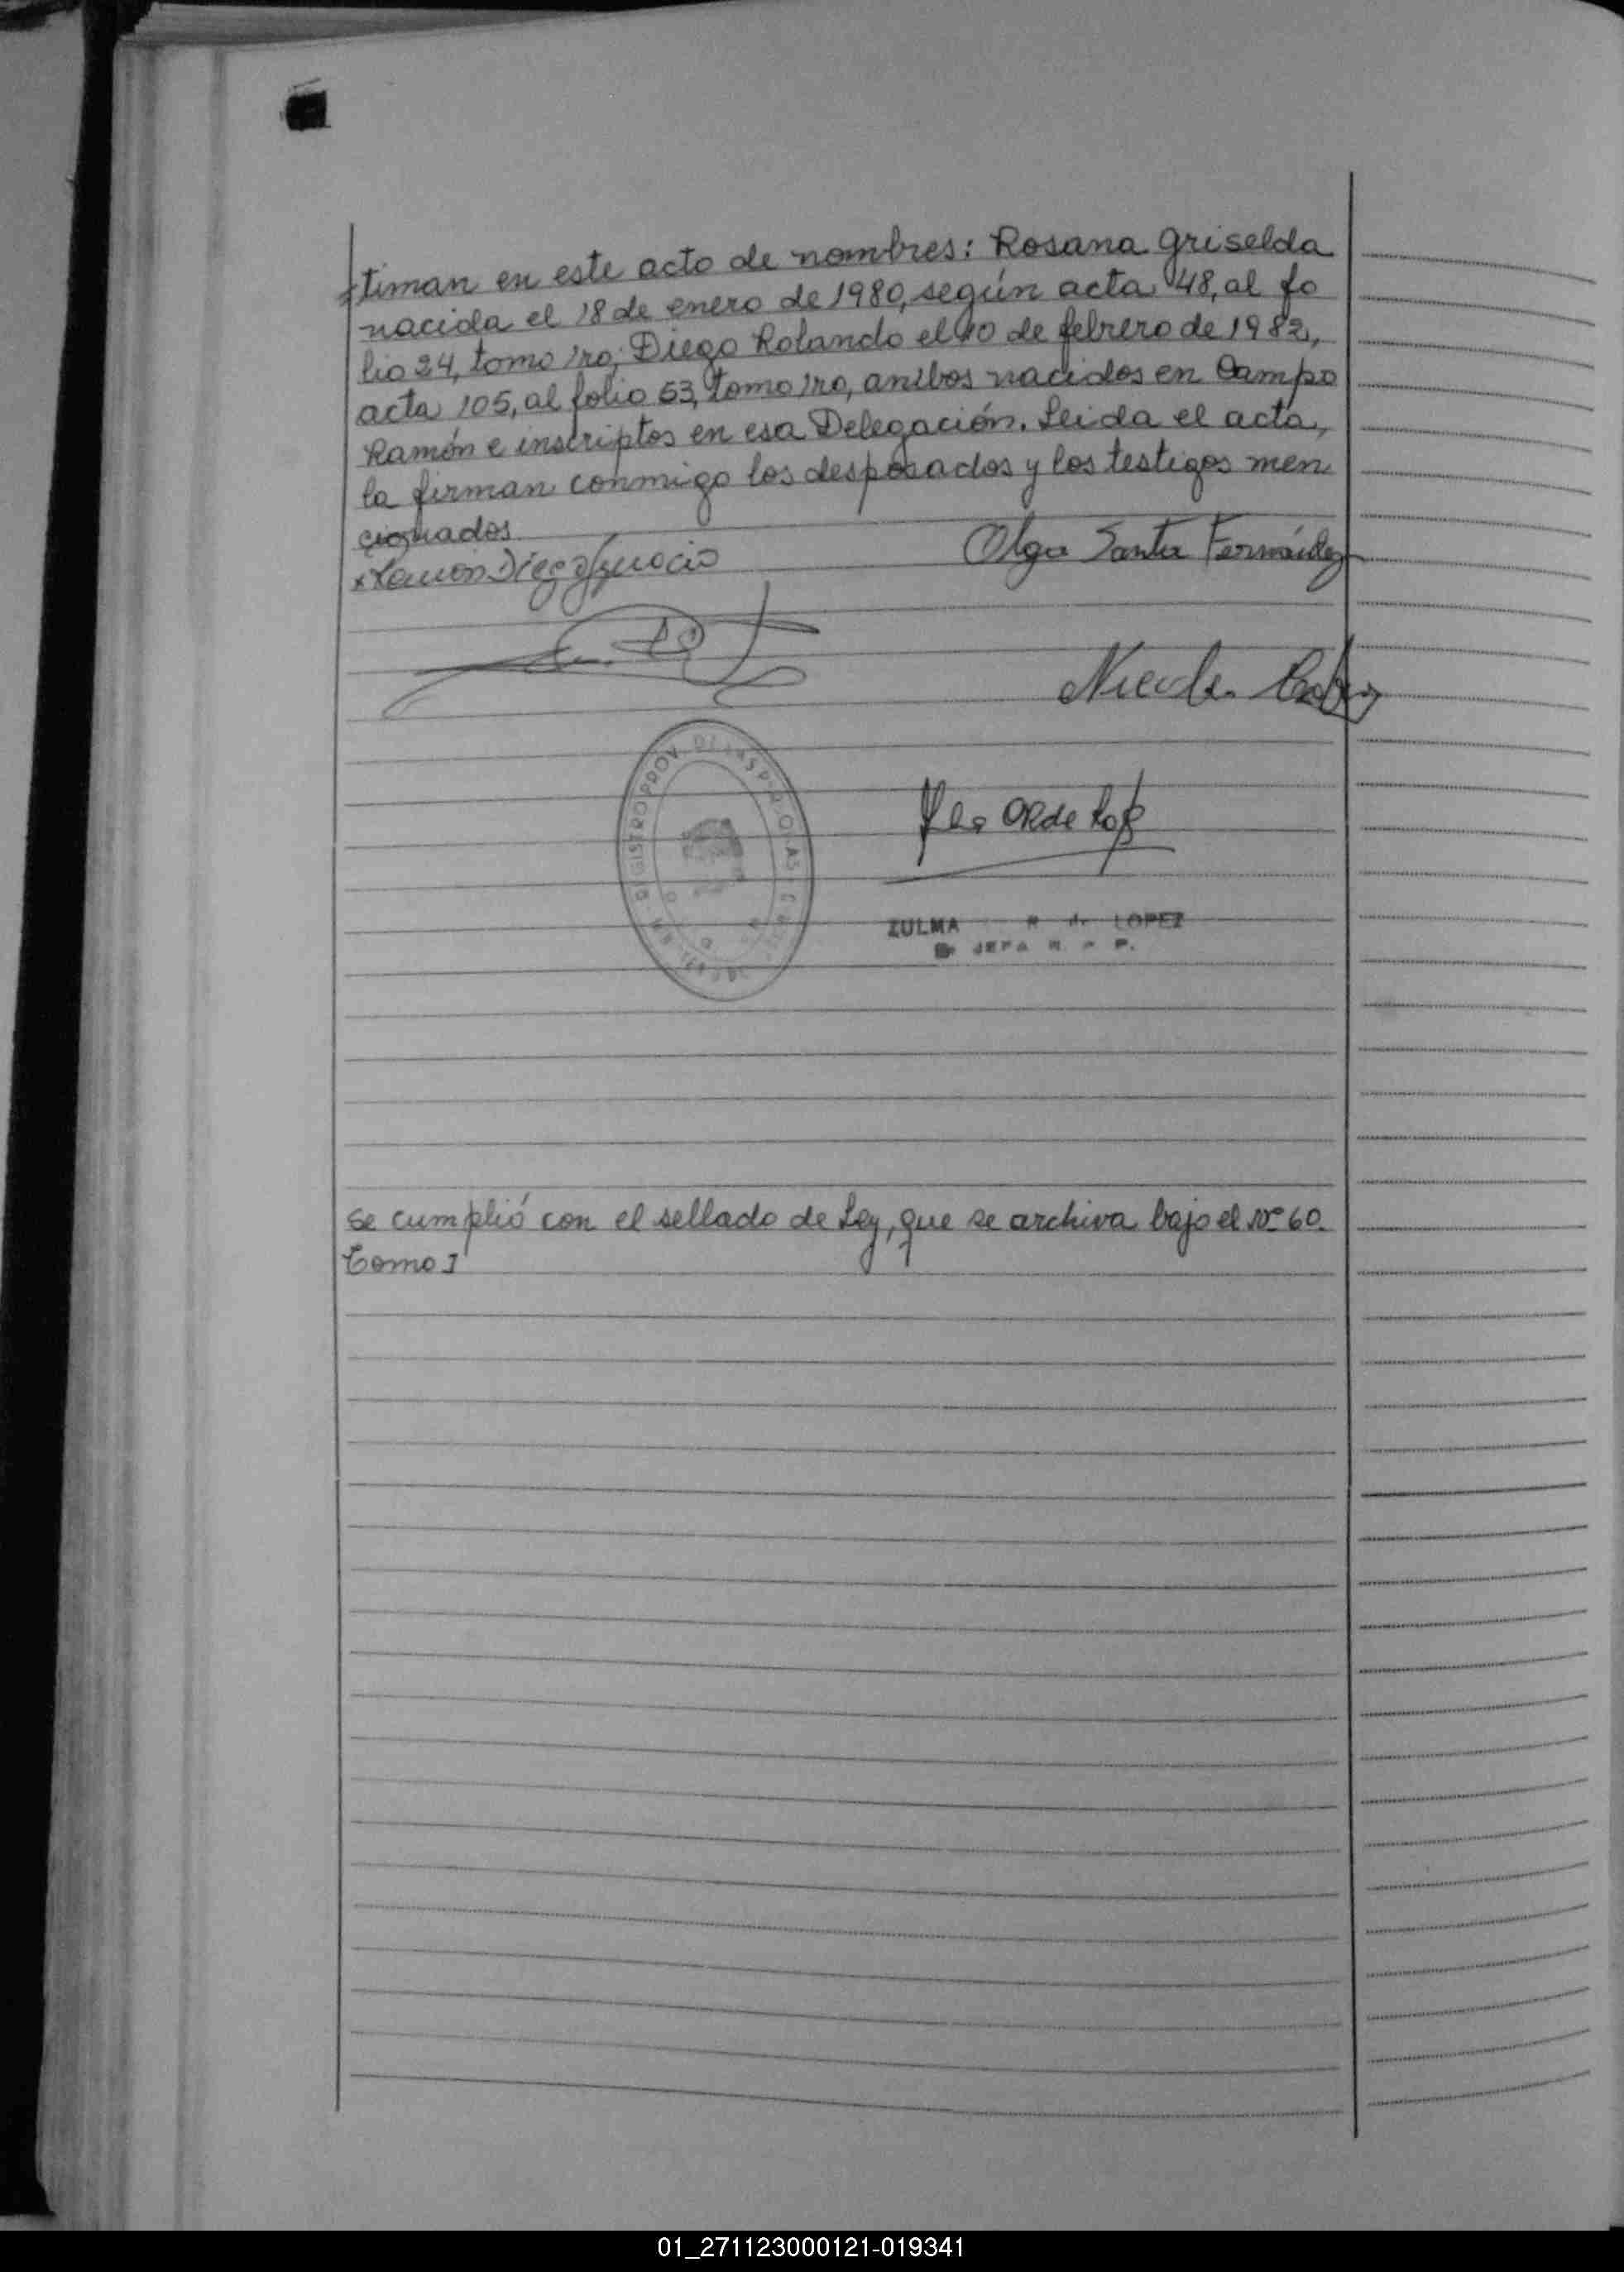 timan en este acto de nombres: Rosana Griselda
nacida el 18 de enero de 1980, según acta 48, al fo
lio 24, tomo 1ro; Diego Rolando el 10 de febrero de 1982,
acta 105, al folio 53, tomo 1ro, ambos nacidos en Campo
Ramón e inscriptos en esa Delegación. Leida el acta,
la firman conmigo los desposados y los testigos men
cionados
x Ramon Diego Ignacio
Olga Santa Fernández
REGISTRO PROV. DE LAS PERSONAS
ZULMA R de LOPEZ
JEFA R. P.
se cumplió con el sellado de Ley, que se archiva bajo el Nº 60.
Tomo I
01_271123000121-019341